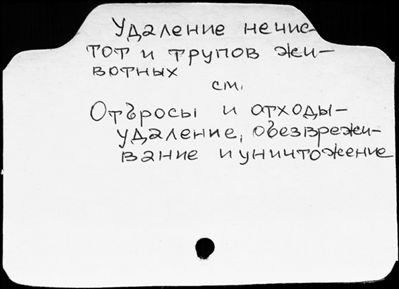 Удаление нечис-
тот и трупов жи-
вотных
см.
Отбросы и отходы-
удаление, обезврежи-
вание и уничтожение